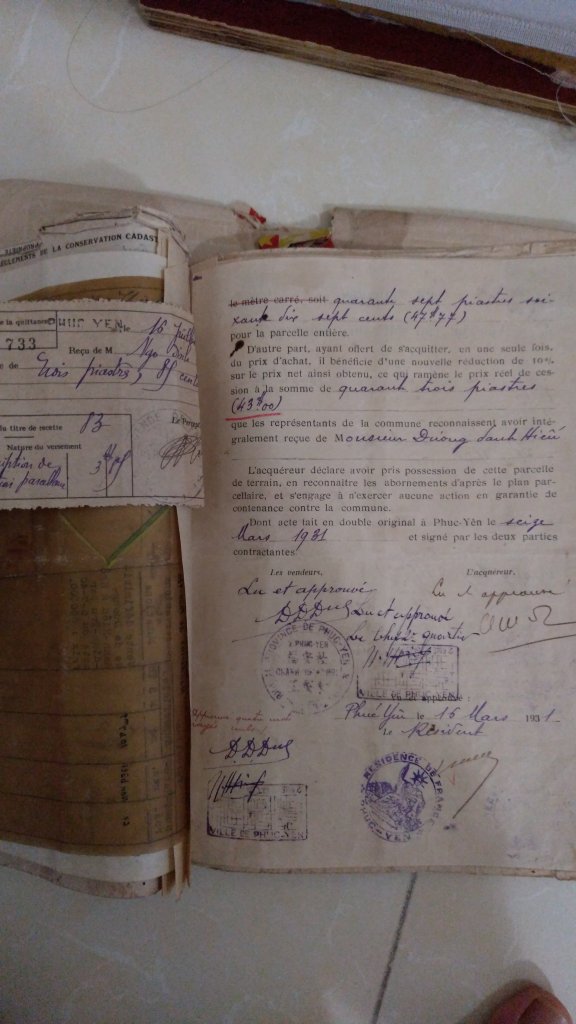 RÈGLEMENTS DE LA CONSERVATION CADAST
de la quittance
PHUC YEN, le 16 juillet
733
Reçu de M. Ngo
de trois piastres, 85 cents
du titre de recette 83
Nature du versement
le mètre carré, soit quarante sept piastres soi-
xante dix sept cents (47$77)
pour la parcelle entière.
D'autre part, ayant offert de s'acquitter, en une seule fois,
du prix d'achat, il bénéficie d'une nouvelle réduction de 10%
sur le prix net ainsi obtenu, ce qui ramène le prix réel de ces-
sion à la somme de quarante trois piastres
(43$00)
que les représentants de la commune reconnaissent avoir inté-
gralement reçue de Monsieur Duong danh Hiên
L'acquéreur déclare avoir pris possession de cette parcelle
de terrain, en reconnaître les abornements d'après le plan par-
cellaire, et s'engage à n'exercer aucune action en garantie de
contenance contre la commune.
Dont acte fait en double original à Phuc-Yên le seize
Mars 1931 et signé par les deux parties
contractantes
Les vendeurs. L'acquéreur.
Lu et approuvé Lu et approuvé
DDDuc Lu et approuvé
Le chef de quartier
PROVINCE DE PHUC-YEN
VILLE DE PHUC-YEN
Vu et approuvé :
Phuc Yên le 16 Mars 1931
Le Résident
DDDuc
RESIDENCE DE FRANCE
PHUC-YEN
VILLE DE PHUC-YEN